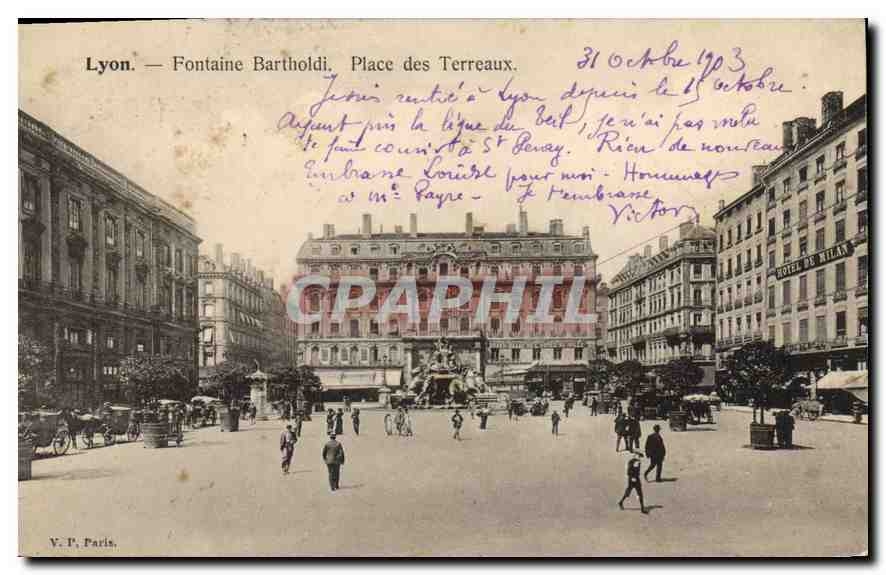 Lyon. — Fontaine Bartholdi. Place des Terreaux.
31 Octobre 1903
Je suis rentré à Lyon depuis le 15 octobre.
Ayant pris la ligne du , je n'ai pas
te faire à St . Rien de nouveau.
Embrasse pour moi - Hommages
à Mme - Je t'embrasse
Victor
HOTEL DE MILAN
CPAPHIL
V. P, Paris.